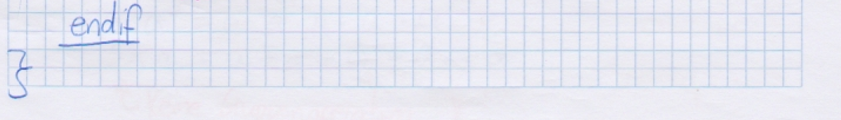 endif
}